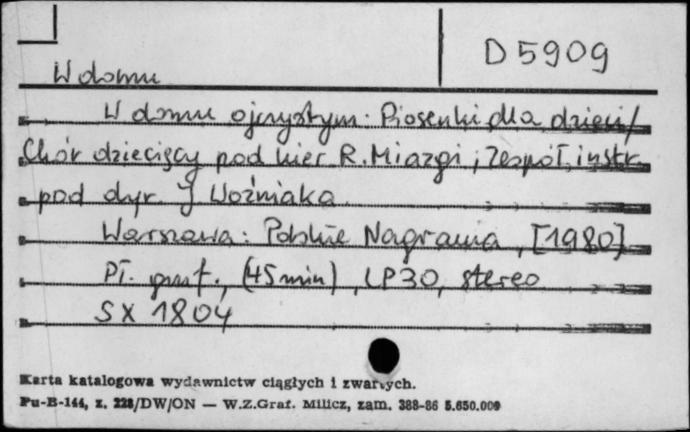 D 5909
W domu
W domu ojczystym: Piosenki dla dzieci /
Chór dziecięcy pod kier. R. Miazgi ; Zespół instr.
pod dyr. J Woźniaka
Warszawa : Polskie Nagrania, [1980]
Pł. gmf., (45 min), LP30, stereo
SX 1804
Karta katalogowa wydawnictw ciągłych i zwartych.
Pu-B-144, z. 228/DW/ON — W.Z.Graf. Milicz, zam. 388-86 5.650.000